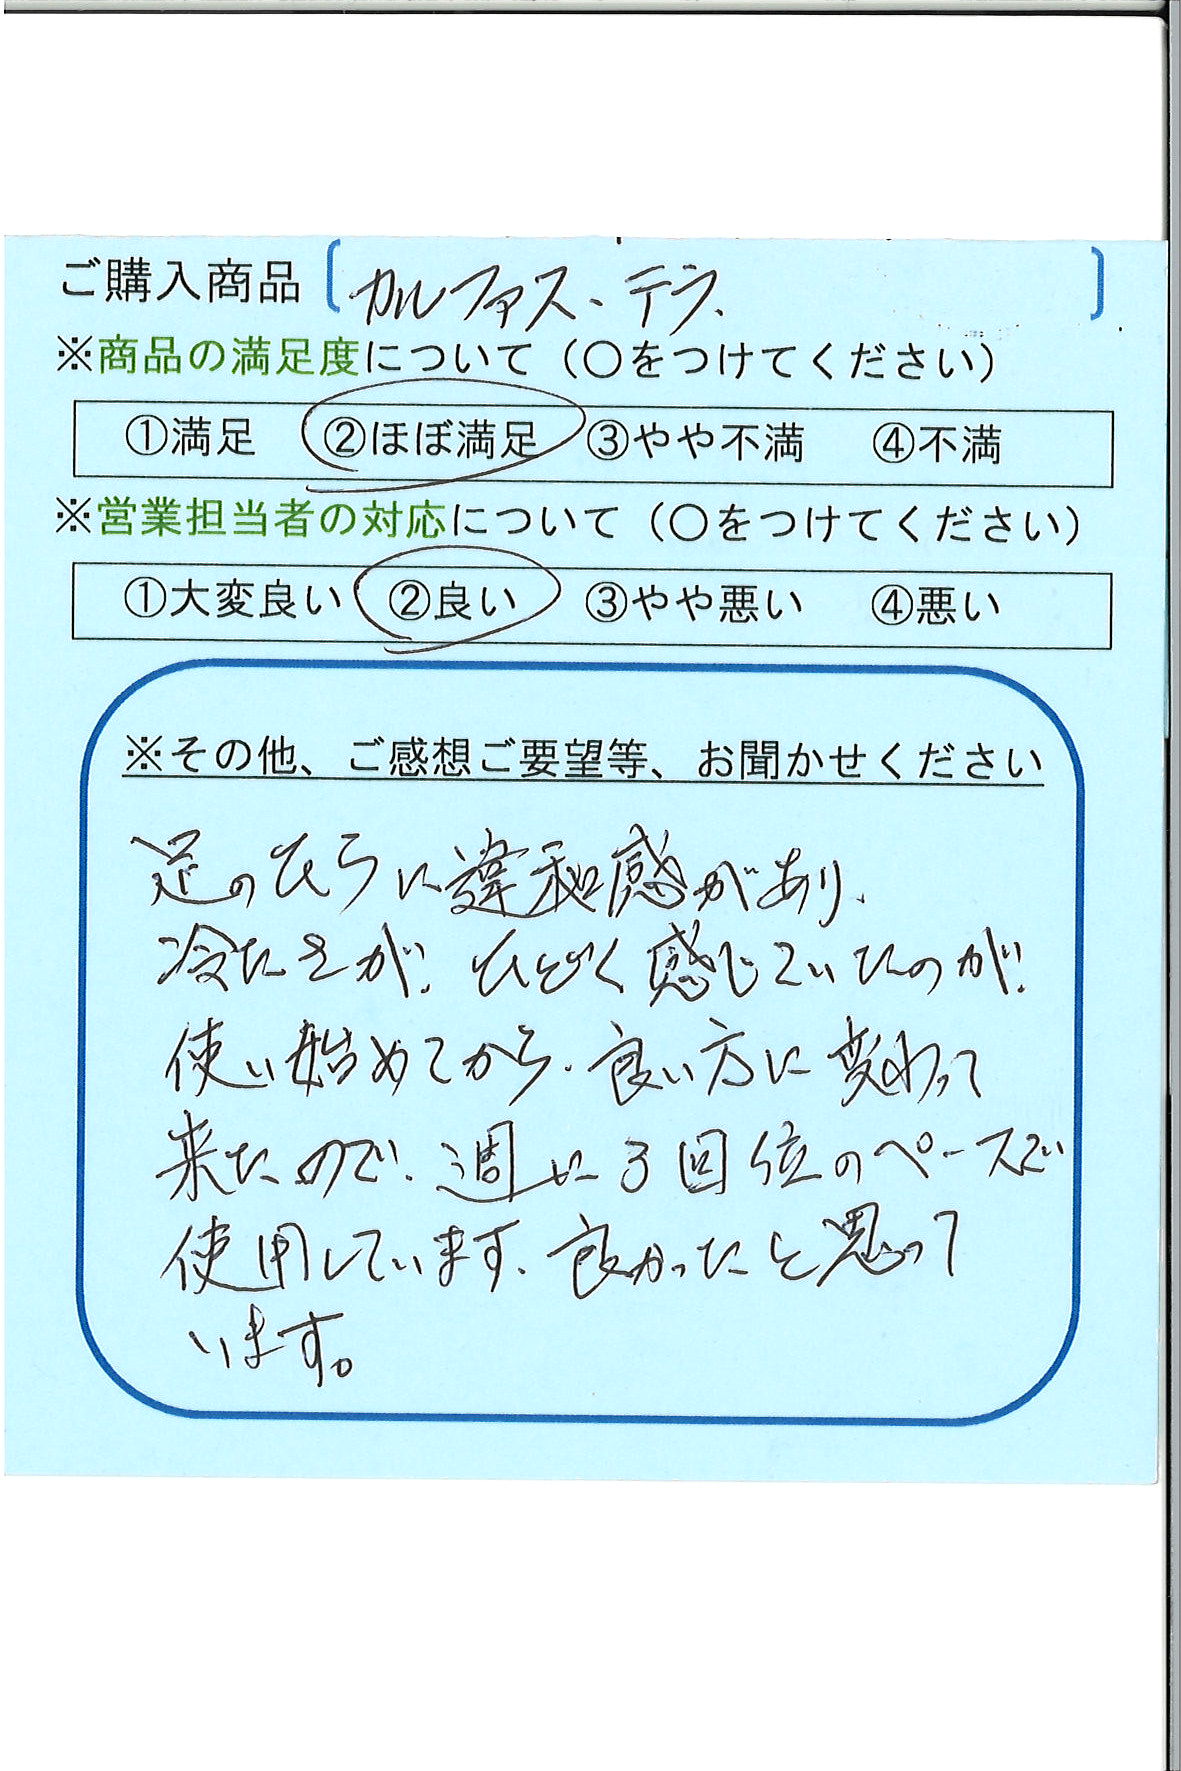 ご購入商品 [カルファス、テラ、]
※商品の満足度について（○をつけてください）
①満足 ②ほぼ満足 ③やや不満 ④不満
※営業担当者の対応について（○をつけてください）
①大変良い ②良い ③やや悪い ④悪い
※その他、ご感想ご要望等、お聞かせください
足のひらに違和感があり、
冷たさが、ひどく感じていたのが、
使い始めてから、良い方に変わって
来たので、週に3回位のペースで
使用しています、良かったと思って
います。